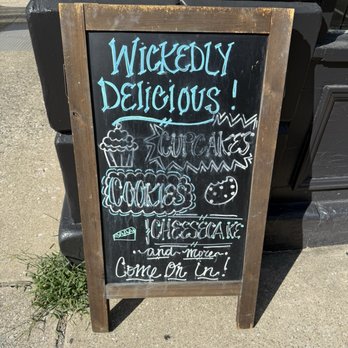 Wickedly
Delicious!
Cupcakes
Cookies
Cheesecake
and more
Come On in!